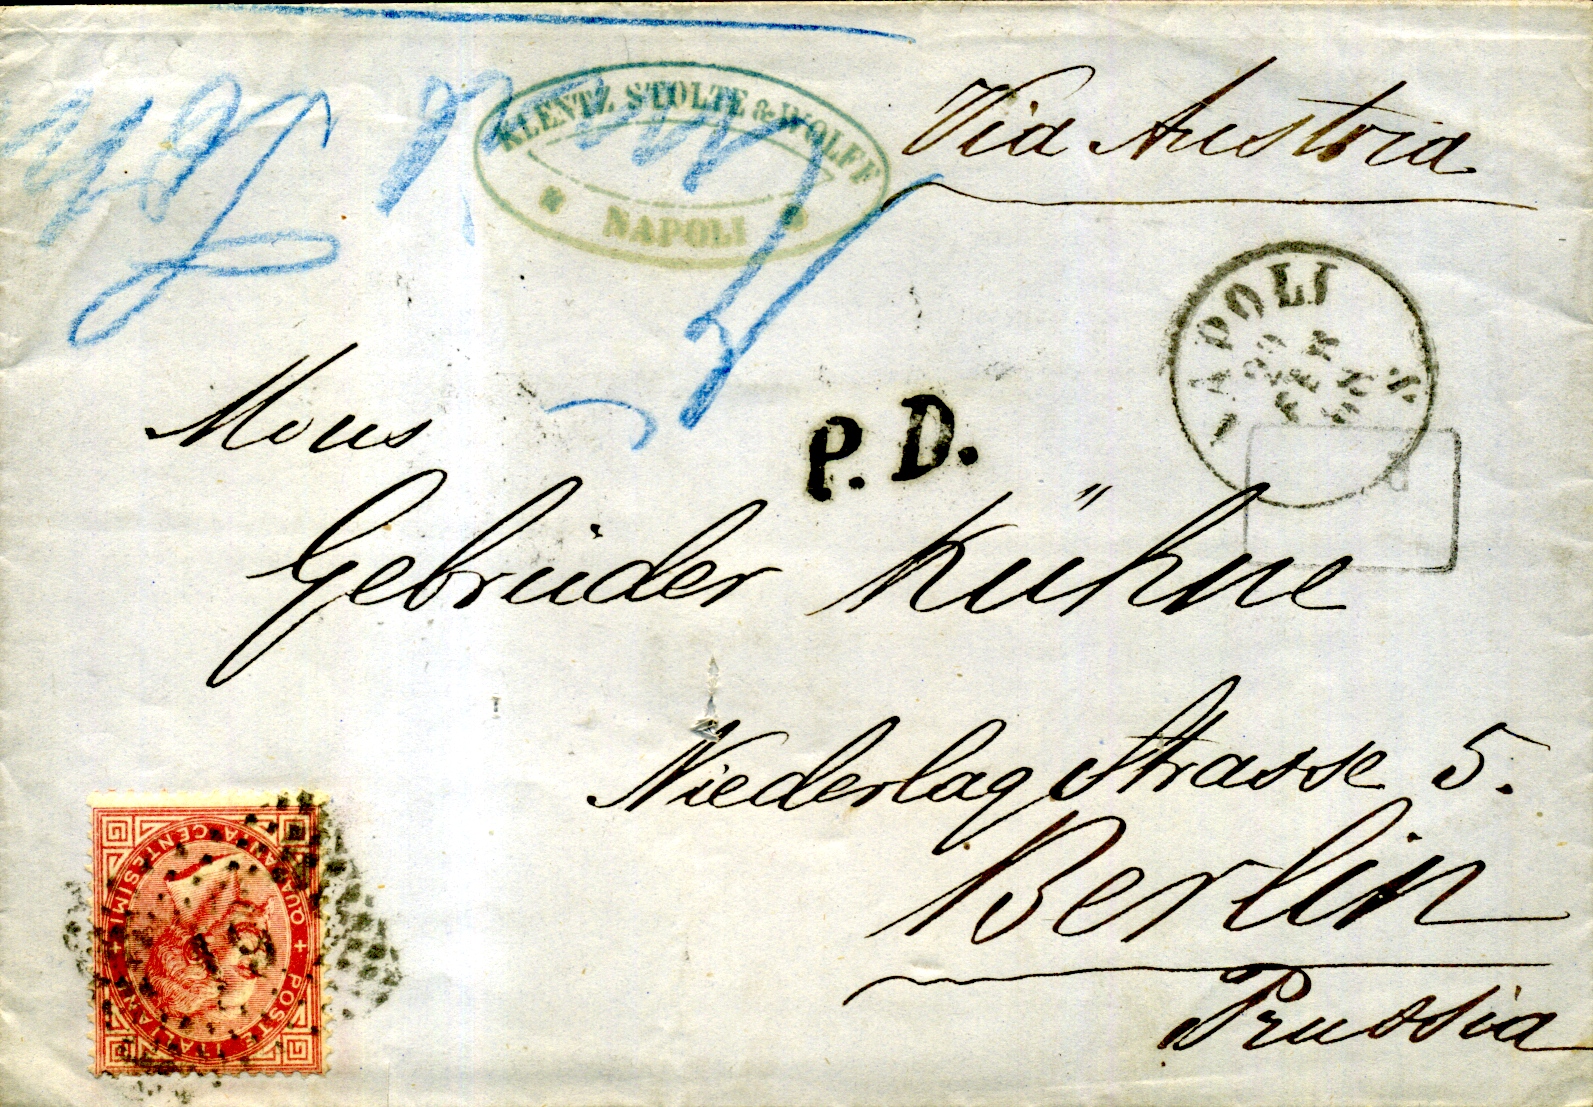 KLENTZ STOLTE & WOLFF
NAPOLI
Via Austria
NAPOLI
P. D.
Mons
Gebrüder Kühne
Niederlag Strasse 5.
Berlin
Prussia
POSTE ITALIANE
QUARANTA CENTESIMI